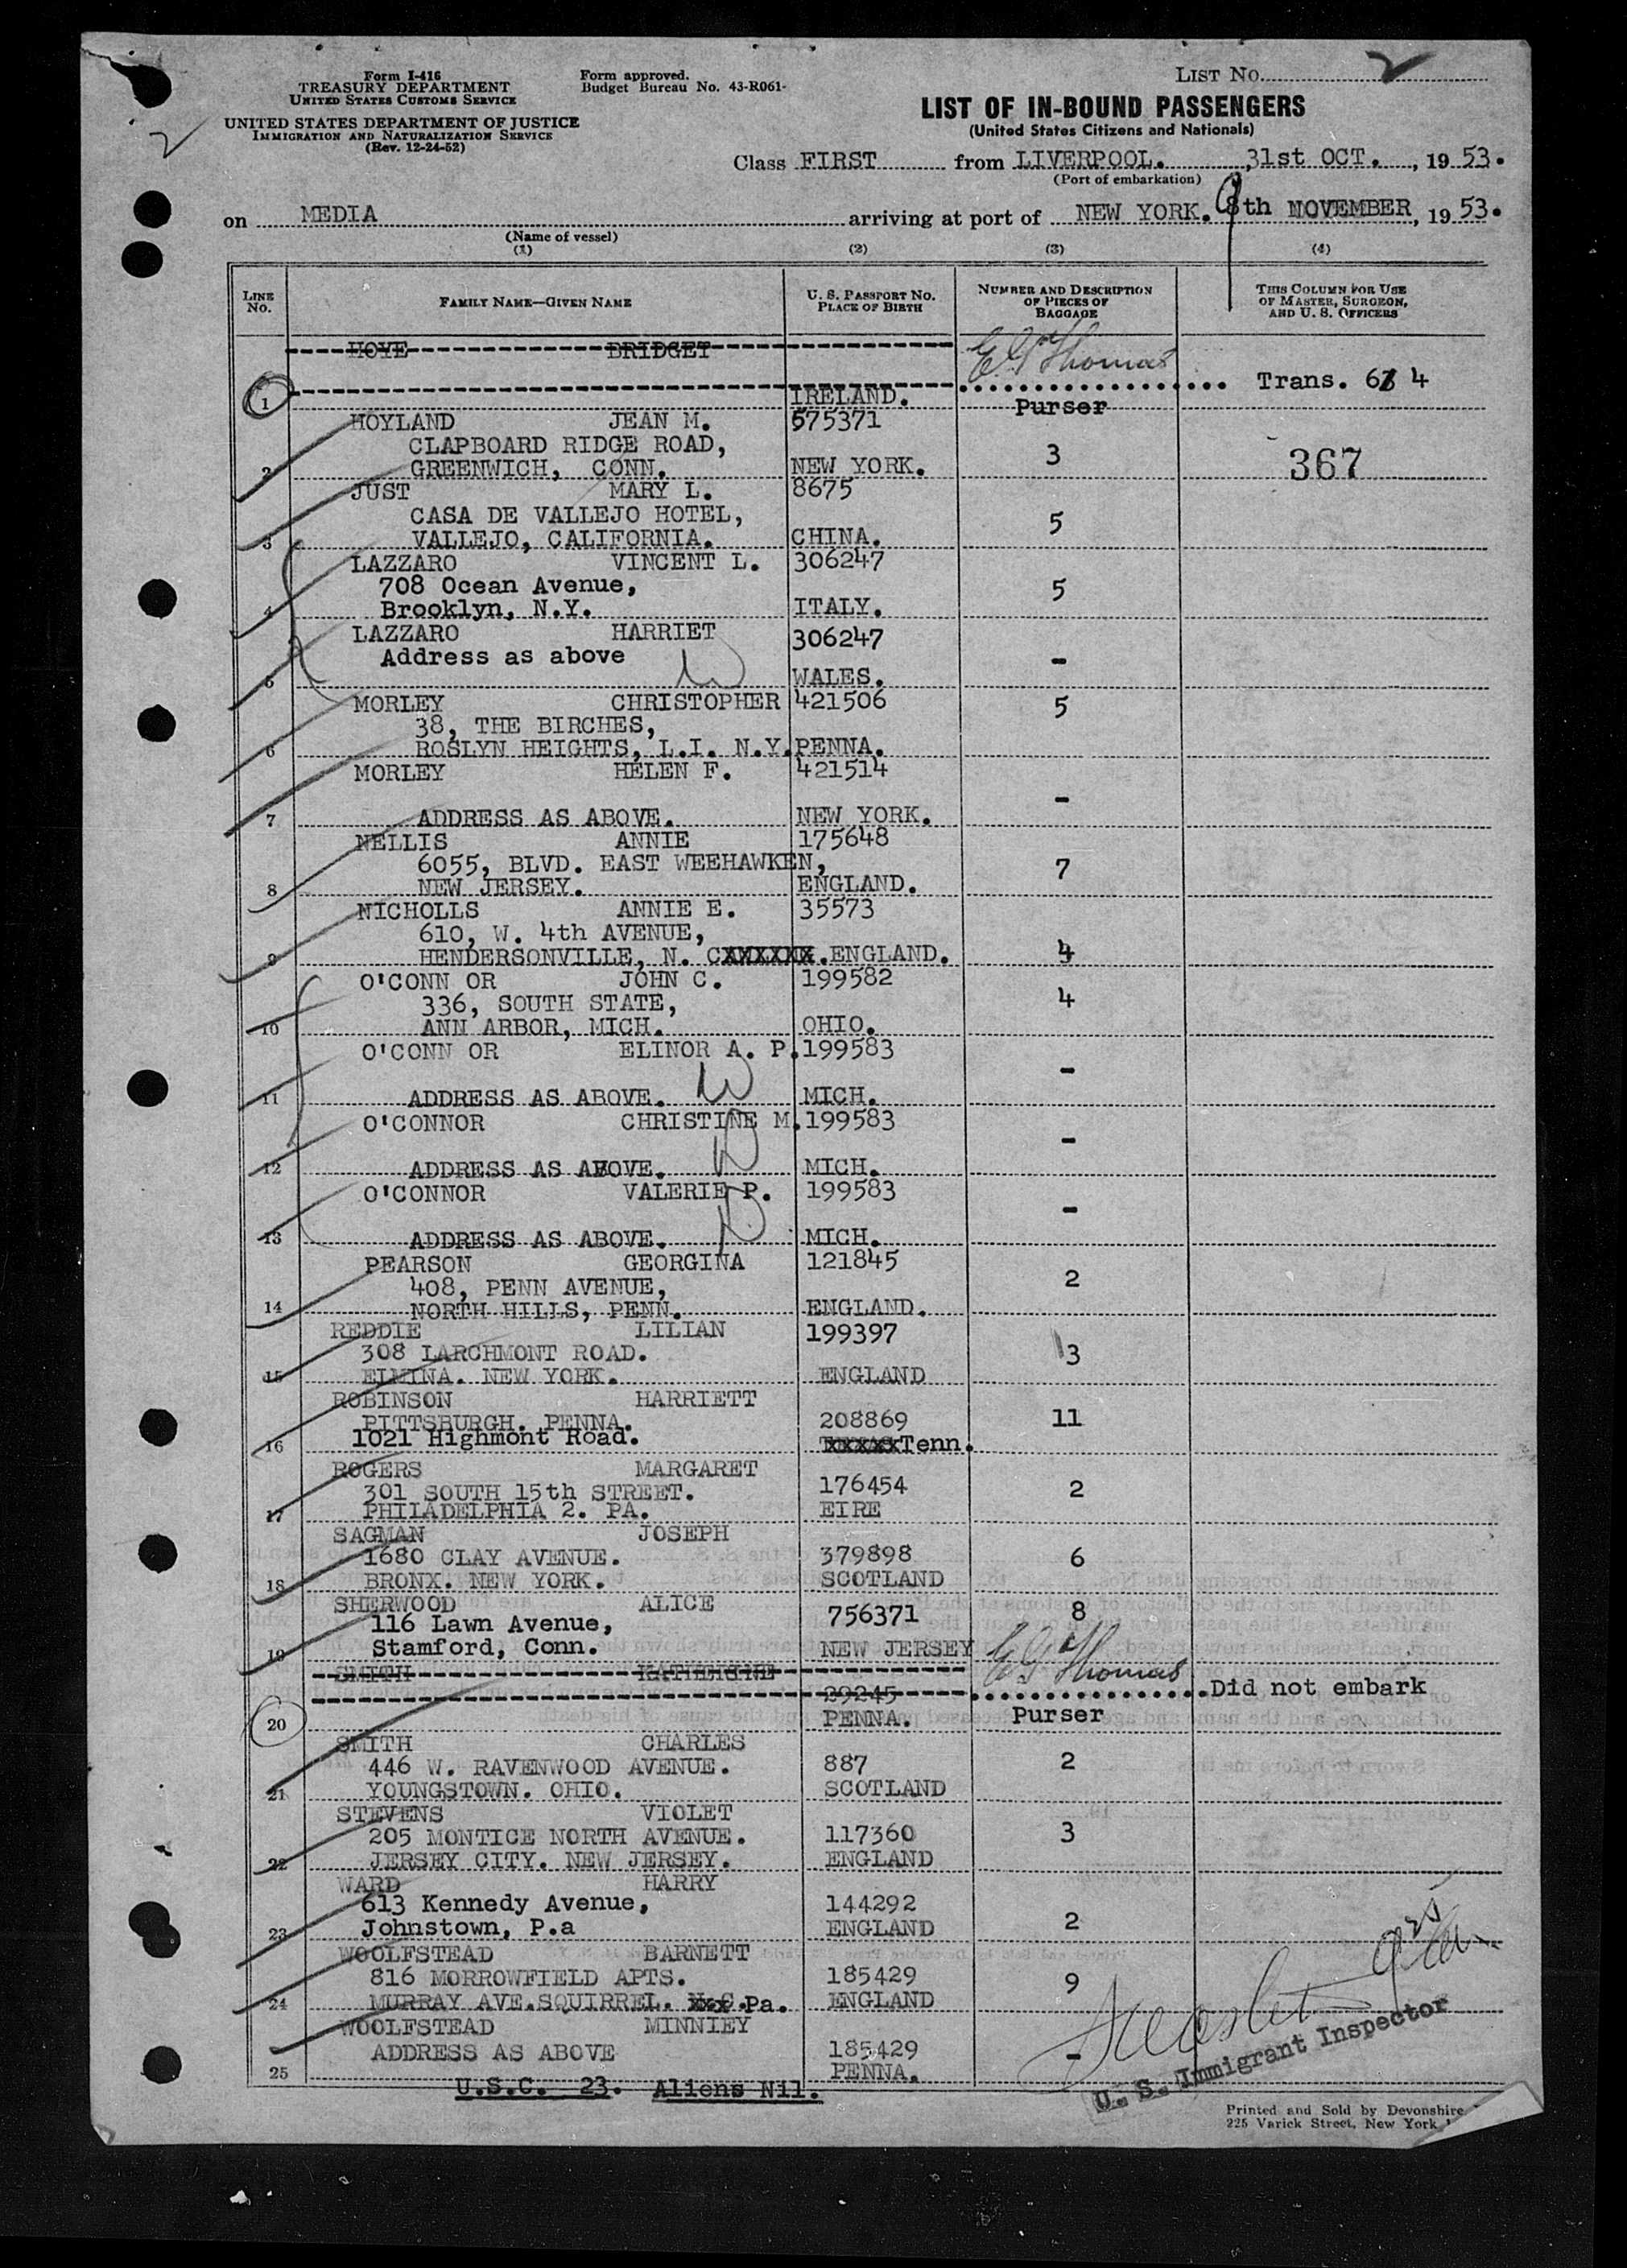 2
Form I-416
TREASURY DEPARTMENT
UNITED STATES CUSTOMS SERVICE
UNITED STATES DEPARTMENT OF JUSTICE
IMMIGRATION AND NATURALIZATION SERVICE
(Rev. 12-24-52)
Form approved.
Budget Bureau No. 43-R061-
LIST No. 2
LIST OF IN-BOUND PASSENGERS
(United States Citizens and Nationals)
Class FIRST from LIVERPOOL. 31st OCT. , 19 53.
(Port of embarkation)
on MEDIA arriving at port of NEW YORK. 9 8th NOVEMBER, 19 53.
(Name of vessel)
(1) (2) (3) (4)
LINE No. FAMILY NAME—GIVEN NAME U. S. PASSPORT No. PLACE OF BIRTH NUMBER AND DESCRIPTION OF PIECES OF BAGGAGE THIS COLUMN FOR USE OF MASTER, SURGEON, AND U. S. OFFICERS
HOYE BRIDGET E G Thomas
Trans. 6 4
1 IRELAND. Purser
HOYLAND JEAN M. 575371
CLAPBOARD RIDGE ROAD, 3 367
2 GREENWICH, CONN. NEW YORK.
JUST MARY L. 8675
CASA DE VALLEJO HOTEL, 5
3 VALLEJO, CALIFORNIA. CHINA.
LAZZARO VINCENT L. 306247
708 Ocean Avenue, 5
4 Brooklyn, N.Y. ITALY.
LAZZARO HARRIET 306247
Address as above W -
5 WALES.
MORLEY CHRISTOPHER 421506 5
38, THE BIRCHES,
6 ROSLYN HEIGHTS, L.I. N.Y. PENNA.
MORLEY HELEN F. 421514
-
7 ADDRESS AS ABOVE. NEW YORK.
NELLIS ANNIE 175648
6055, BLVD. EAST WEEHAWKEN, 7
8 NEW JERSEY. ENGLAND.
NICHOLLS ANNIE E. 35573
610, W. 4th AVENUE,
9 HENDERSONVILLE, N. CXXXXXX. ENGLAND. 4
O'CONN OR JOHN C. 199582
336, SOUTH STATE, 4
10 ANN ARBOR, MICH. OHIO.
O'CONN OR ELINOR A. P. 199583
W -
11 ADDRESS AS ABOVE. MICH.
O'CONNOR CHRISTINE M. 199583
D -
12 ADDRESS AS ABOVE. MICH.
O'CONNOR VALERIE P. 199583
D -
13 ADDRESS AS ABOVE. MICH.
PEARSON GEORGINA 121845
408, PENN AVENUE, 2
14 NORTH HILLS, PENN. ENGLAND.
REDDIE LILIAN 199397
308 LARCHMONT ROAD. 3
15 ELMINA. NEW YORK. ENGLAND
ROBINSON HARRIETT
PITTSBURGH. PENNA. 208869 11
16 1021 Highmont Road. xxxxxTenn.
ROGERS MARGARET
301 SOUTH 15th STREET. 176454 2
17 PHILADELPHIA 2. PA. EIRE
SAGMAN JOSEPH
1680 CLAY AVENUE. 379898 6
18 BRONX. NEW YORK. SCOTLAND
SHERWOOD ALICE
116 Lawn Avenue, 756371 8
19 Stamford, Conn. NEW JERSEY
SMITH KATHERINE E G Thomas
29245 Did not embark
20 PENNA. Purser
SMITH CHARLES
446 W. RAVENWOOD AVENUE. 887 2
21 YOUNGSTOWN. OHIO. SCOTLAND
STEVENS VIOLET
205 MONTICE NORTH AVENUE. 117360 3
22 JERSEY CITY. NEW JERSEY. ENGLAND
WARD HARRY
613 Kennedy Avenue, 144292
23 Johnstown, P.a ENGLAND 2
WOOLFSTEAD BARNETT
816 MORROWFIELD APTS. 185429 9
24 MURRAY AVE.SQUIRREL. xxx Pa. ENGLAND
WOOLFSTEAD MINNIEY
ADDRESS AS ABOVE 185429 -
25 PENNA.
U.S.C. 23. Aliens Nil.
U. S. Immigrant Inspector
Printed and Sold by Devonshire
225 Varick Street, New York